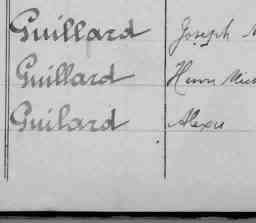 Guillard Joseph
Guillard Henri
Guilard Alexis